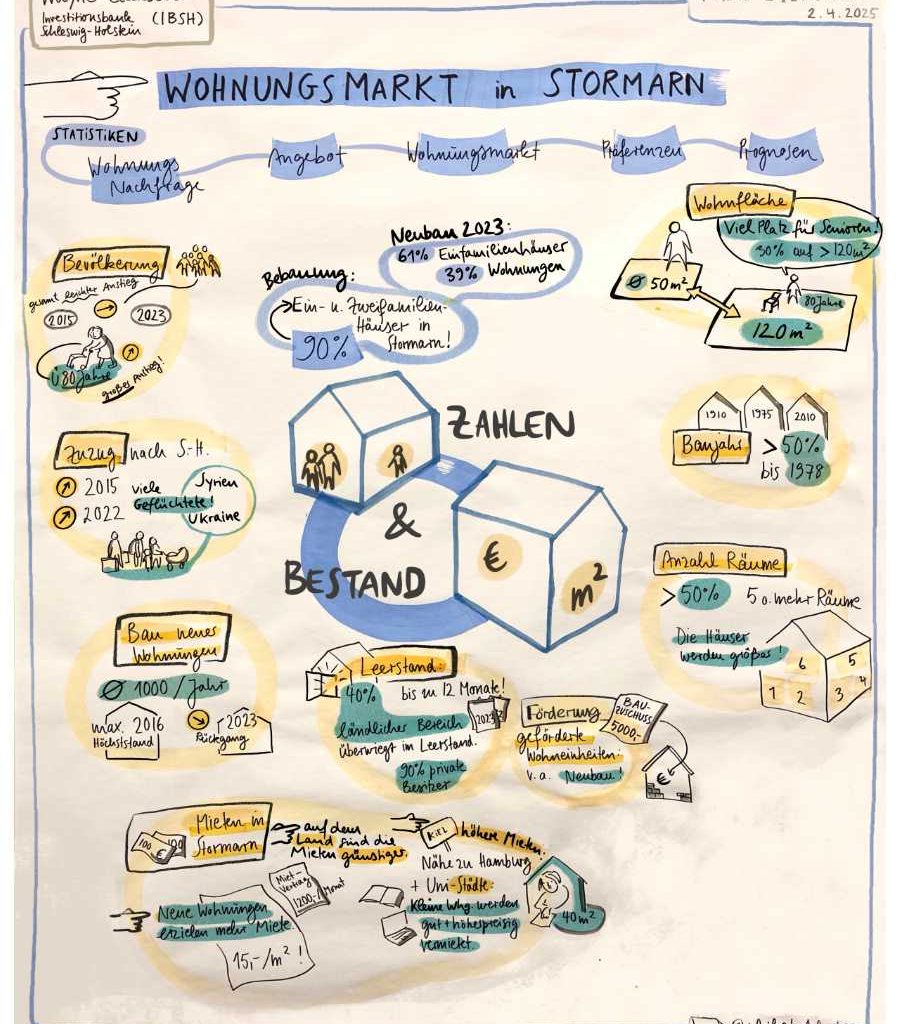 Investitionsbank (IBSH)
Schleswig-Holstein
2.4.2025
WOHNUNGSMARKT in STORMARN
STATISTIKEN
Wohnungs
Nachfrage
Angebot
Wohnungsmarkt
Präferenzen
Prognosen
Bevölkerung
gesamt leichter Anstieg
2015
2023
Ü 80 Jahre
großer Anstieg!
Bebauung:
Ein- u. Zweifamilien-
Häuser in
Stormarn!
90%
Neubau 2023:
61% Einfamilienhäuser
39% Wohnungen
Wohnfläche
Viel Platz für Senioren!
30% auf >120m²
Ø 50m²
80 Jahre
120 m²
Zuzug nach S-H.
2015 viele
Geflüchtete!
2022
Syrien
Ukraine
ZAHLEN
&
BESTAND
€
m²
1910
1975
2010
Baujahr > 50%
bis 1978
Anzahl Räume
> 50% 5 o. mehr Räume
Die Häuser
werden größer!
6 5
1 2 3 4
Bau neuer
Wohnungen
Ø 1000 / Jahr
max. 2016
Höchststand
2023
Rückgang
Leerstand:
40% bis zu 12 Monate!
2023
ländlicher Bereich
überwiegt im Leerstand.
90% private
Besitzer
Förderung
geförderte
Wohneinheiten:
v.a. Neubau!
BAU-
ZUSCHUSS
5000,-
€
Mieten in
Stormarn
100 100
auf dem
Land sind die
Mieten günstiger.
Miet-
Vertrag
1200,-/Monat
Neue Wohnungen
erzielen mehr Miete.
15,-/m² !
KIEL
höhere Mieten.
Nähe zu Hamburg
+ Uni-Städte:
Kleine Whg. werden
gut + höhespreisig
vermietet
40 m²